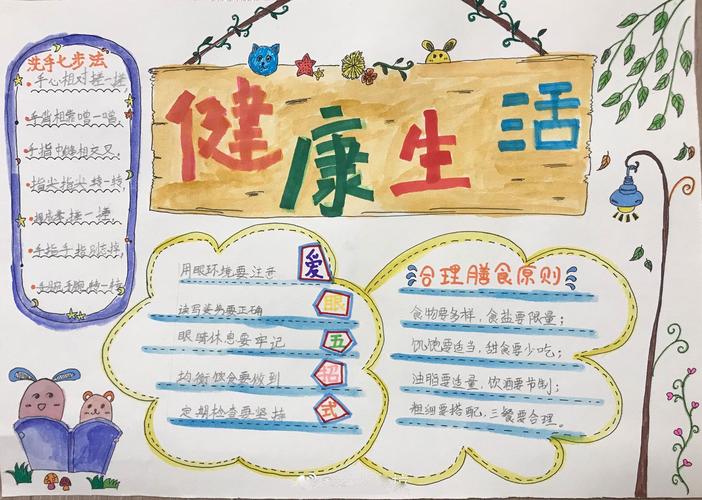 健康生活
洗手七步法
手心相对搓一搓
手背相靠蹭一蹭
手指中缝相交叉
指尖指尖转一转
握成拳搓一搓
手指手指别忘掉
手腕手腕转一转
爱眼五招式
用眼环境要注意
读写姿势要正确
眼睛休息要牢记
均衡饮食要做到
定期检查要坚持
合理膳食原则
食物要多样，食盐要限量；
饥饱要适当，甜食要少吃；
油脂要适量，饮酒要节制；
粗细要搭配，三餐要合理。